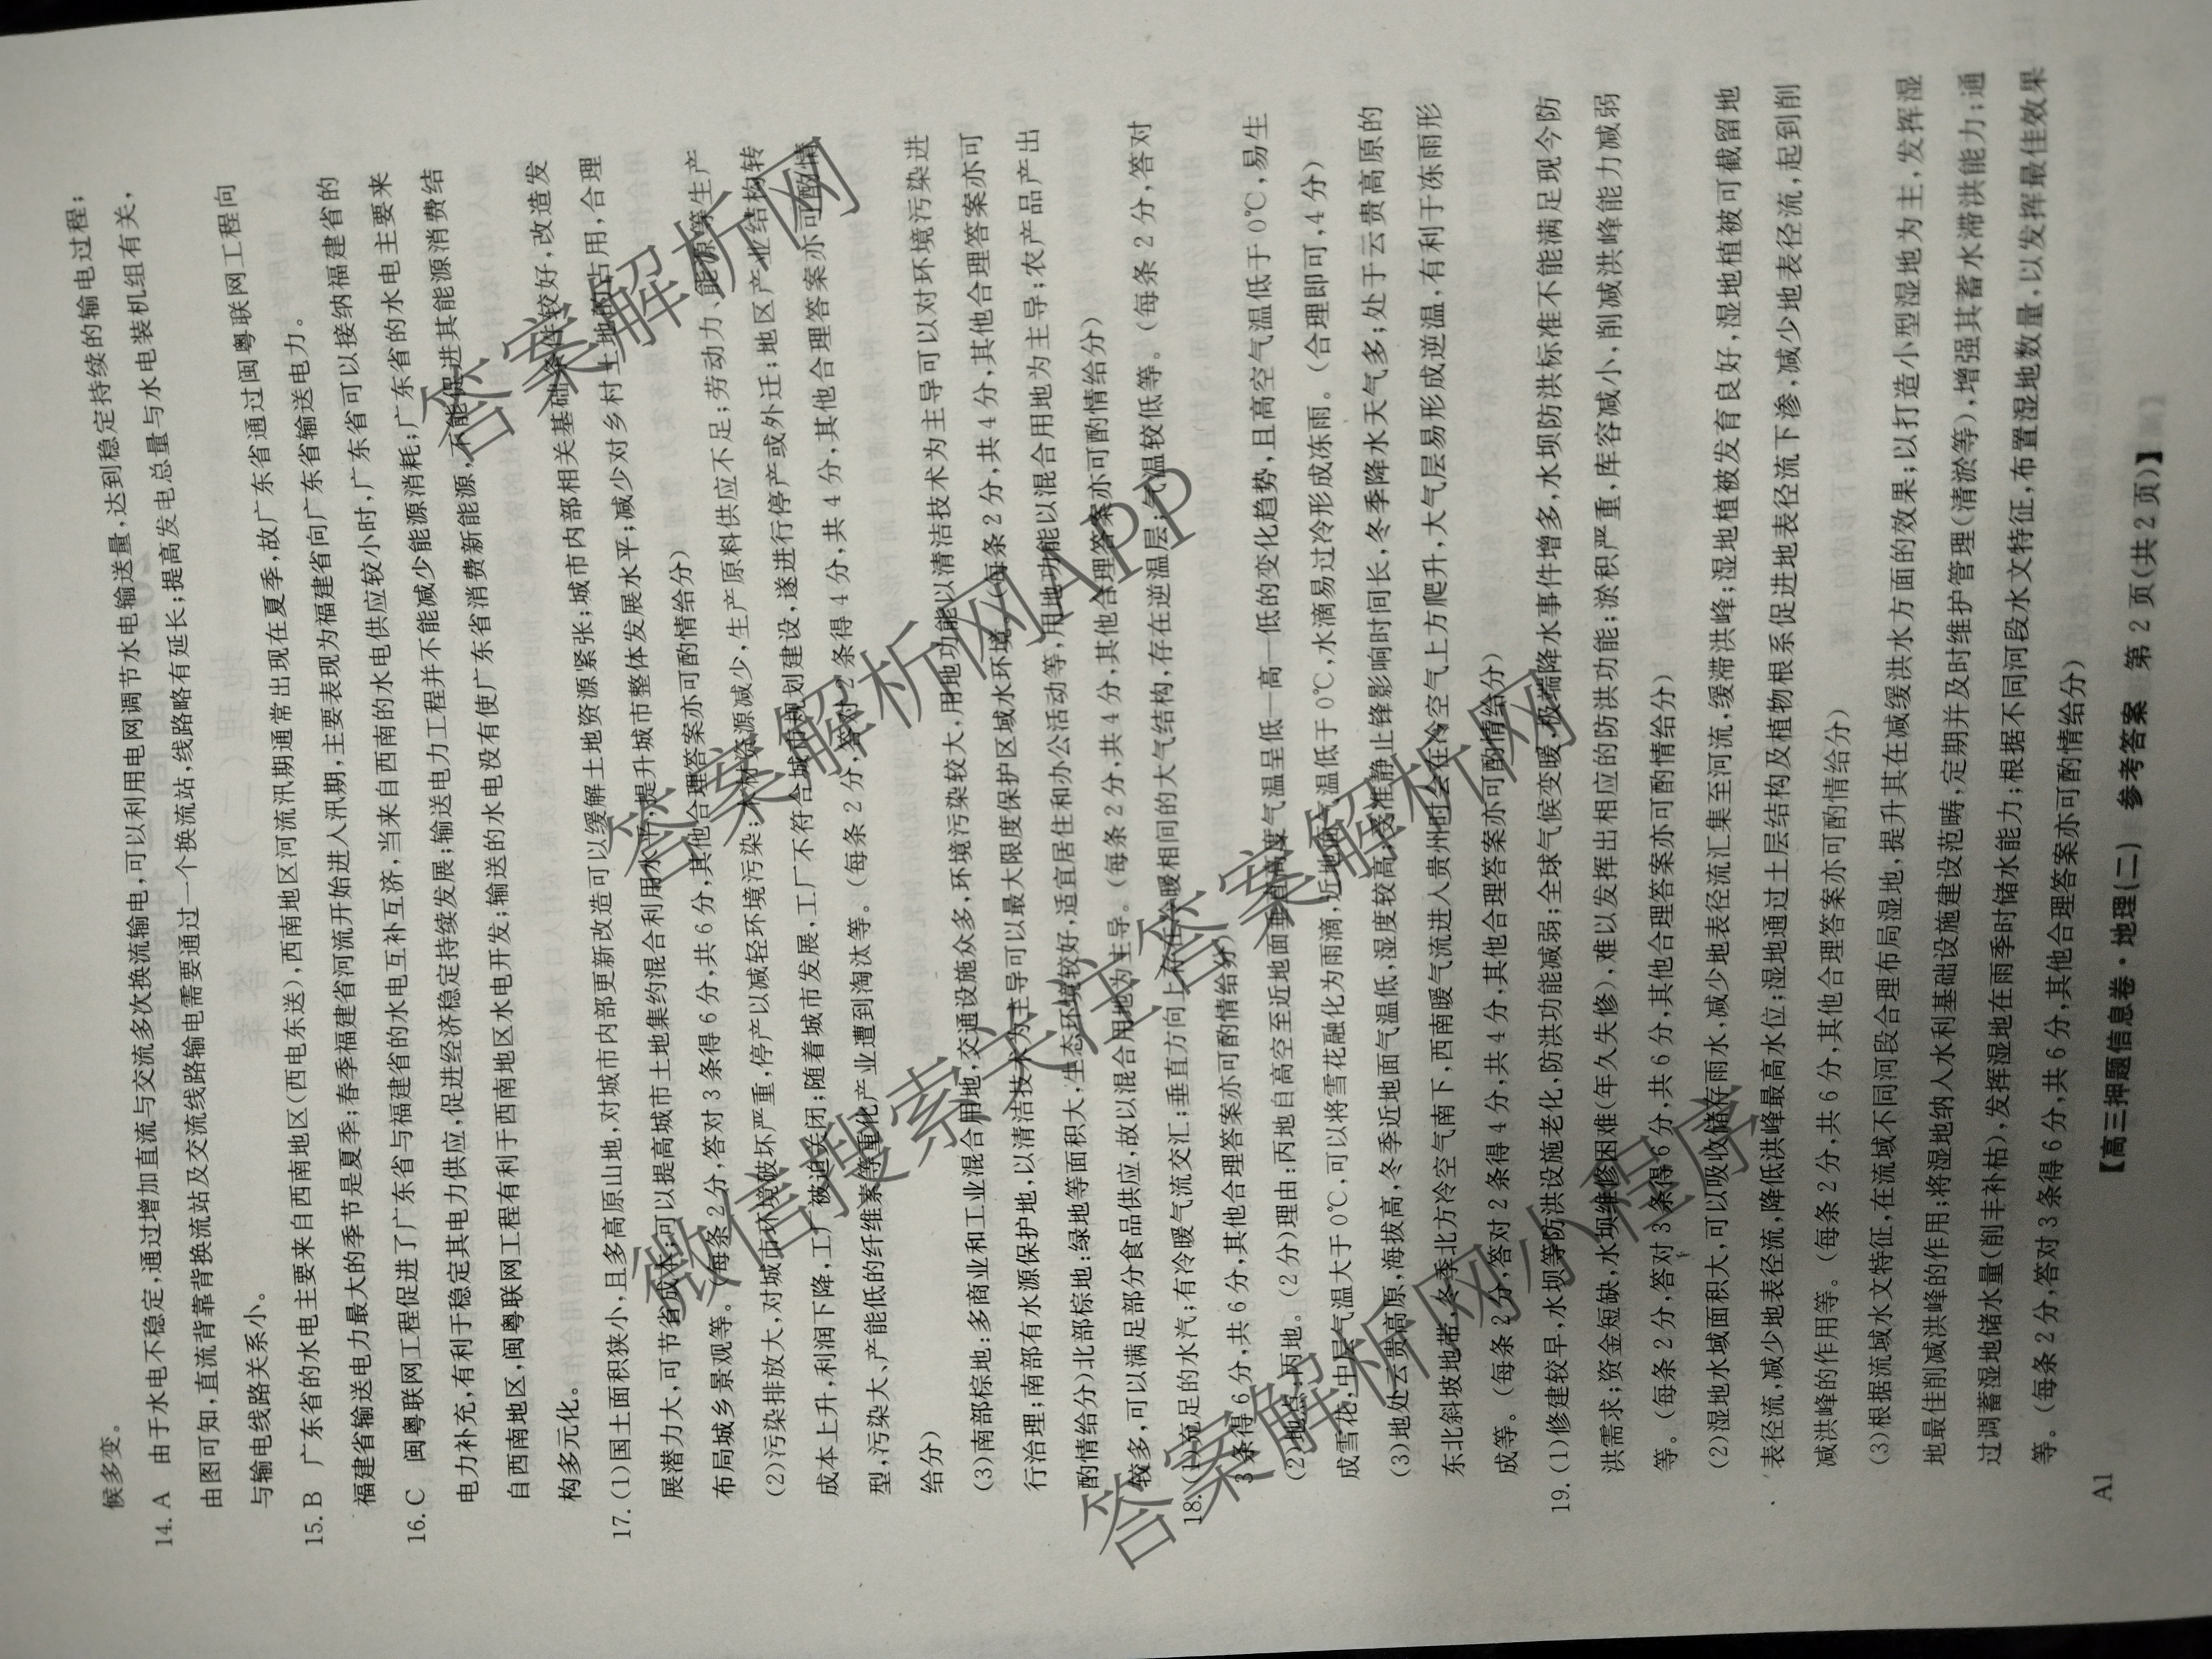 候多变。
14. A 由于水电不稳定,通过增加直流与交流多次换流输电,可以利用电网调节水电输送量,达到稳定持续的输电过程;
由图可知,直流背靠背换流站及交流线路输电需要通过一个换流站,线路略有延长;提高发电总量与水电装机组有关,
与输电线路关系小。
15. B 广东省的水电主要来自西南地区(西电东送),西南地区河流汛期通常出现在夏季,故广东省通过闽粤联网工程向
福建省输送电力最大的季节是夏季;春季福建省河流开始进入汛期,主要表现为福建省向广东省输送电力。
16. C 闽粤联网工程促进了广东省与福建省的水电互补互济,当来自西南的水电供应较小时,广东省可以接纳福建省的
电力补充,有利于稳定其电力供应,促进经济稳定持续发展;输送电力工程并不能减少能源消耗;广东省的水电主要来
自西南地区,闽粤联网工程有利于西南地区水电开发;输送的水电没有使广东省消费新能源,不能促进其能源消费结
构多元化。
17. (1)国土面积狭小,且多高原山地,对城市内部更新改造可以缓解土地资源紧张;城市内部相关基础条件较好,改造发
展潜力大,可节省成本;可以提高城市土地集约混合利用水平,提升城市整体发展水平;减少对乡村土地的占用,合理
布局城乡景观等。(每条 2 分,答对 3 条得 6 分,共 6 分,其他合理答案亦可酌情给分)
(2)污染排放大,对城市环境破坏严重,停产以减轻环境污染;木材资源减少,生产原料供应不足;劳动力、能源等生产
成本上升,利润下降,工厂被迫关闭;随着城市发展,工厂不符合城市规划建设,遂进行停产或外迁;地区产业结构转
型,污染大、产能低的纤维素等重化产业遭到淘汰等。(每条 2 分,答对 2 条得 4 分,共 4 分,其他合理答案亦可酌情
给分)
(3)南部棕地:多商业和工业混合用地,交通设施众多,环境污染较大,用地功能以清洁技术为主导可以对环境污染进
行治理;南部有水源保护地,以清洁技术为主导可以最大限度保护区域水环境。(每条 2 分,共 4 分,其他合理答案亦可
酌情给分)北部棕地:绿地等面积大,生态环境较好,适宜居住和办公活动等,用地功能以混合用地为主导;农产品产出
较多,可以满足部分食品供应,故以混合用地为主导。(每条 2 分,共 4 分,其他合理答案亦可酌情给分)
18. (1)充足的水汽;有冷暖气流交汇;垂直方向上存在冷暖相间的大气结构,存在逆温层;气温较低等。(每条 2 分,答对
3 条得 6 分,共 6 分,其他合理答案亦可酌情给分)
(2)地点:丙地。(2 分)理由:丙地自高空至近地面垂直高度气温呈低—高—低的变化趋势,且高空气温低于 0℃,易生
成雪花,中层气温大于 0℃,可以将雪花融化为雨滴,近地面气温低于 0℃,水滴易过冷形成冻雨。(合理即可,4 分)
(3)地处云贵高原,海拔高,冬季近地面气温低,湿度较高;受准静止锋影响时间长,冬季降水天气多;处于云贵高原的
东北斜坡地带,冬季北方冷空气南下,西南暖气流进入贵州时会在冷空气上方爬升,大气层易形成逆温,有利于冻雨形
成等。(每条 2 分,答对 2 条得 4 分,共 4 分,其他合理答案亦可酌情给分)
19. (1)修建较早,水坝等防洪设施老化,防洪功能减弱;全球气候变暖,极端降水事件增多,水坝防洪标准不能满足现今防
洪需求;资金短缺,水坝维修困难(年久失修),难以发挥出相应的防洪功能;淤积严重,库容减小,削减洪峰能力减弱
等。(每条 2 分,答对 3 条得 6 分,共 6 分,其他合理答案亦可酌情给分)
(2)湿地水域面积大,可以吸收储存雨水,减少地表径流汇集至河流,缓滞洪峰;湿地植被发育良好,湿地植被可截留地
表径流,减少地表径流,降低洪峰最高水位;湿地通过土层结构及植物根系促进地表径流下渗,减少地表径流,起到削
减洪峰的作用等。(每条 2 分,共 6 分,其他合理答案亦可酌情给分)
(3)根据流域水文特征,在流域不同河段合理布局湿地,提升其在减缓洪水方面的效果;以打造小型湿地为主,发挥湿
地最佳削减洪峰的作用;将湿地纳入水利基础设施建设范畴,定期并及时维护管理(清淤等),增强其蓄水滞洪能力;通
过调蓄湿地储水量(削丰补枯),发挥湿地在雨季时储水能力;根据不同河段水文特征,布置湿地数量,以发挥最佳效果
等。(每条 2 分,答对 3 条得 6 分,共 6 分,其他合理答案亦可酌情给分)
【高三押题信息卷·地理(二) 参考答案 第 2 页(共 2 页)】
A1
答案解析网
答案解析网APP
微信搜索关注答案解析网
答案解析网小程序